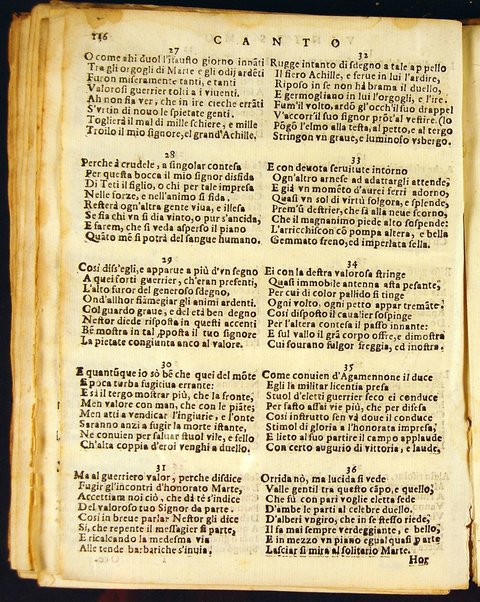 146
CANTO
27
O come ahi duol l'ifausto giorno innāti
Tra gli orgogli di Marte e gli odij ardēti
Furon miseramente tanti, e tanti
Valorosi guerrier tolti a i viuenti.
Ah non fia ver, che in ire cieche errāti
S'vrtin di nouo le spietate genti.
Toglierà il mal di mille schiere, e mille
Troilo il mio signore, el grand'Achille.
28
Perche à crudele, a singolar contesa
Per questa bocca il mio signor disfida
Di Teti il figlio, o chi per tale impresa
Nelle forze, e nell'animo si fida.
Resterà ogn'altra gente viua, e illesa
Se fia chi vn si dia vinto, o pur s'ancida,
E farem, che si veda asperso il piano
Quāto mē si potrà del sangue humano.
29
Cosi diss'egli, e apparue a più d'vn segno
A quei forti guerrier, ch'eran presenti,
L'alto furor del generoso sdegno,
Ond'allhor fiāmegiar gli animi ardenti.
Col guardo graue, e del età ben degno
Nestor diede risposta in questi accenti
Bē mostra in tal ,pposta il tuo signore
La pietate congiunta anco al valore.
30
E quantūque io sò bē che quei del mōte
Epoca turba fugitiua errante:
E si il tergo mostrar più, che la fronte,
Men valore con man, che con le piāte;
Men atti a vendicar l'ingiurie, e l'onte
Saranno anzi a fugir la morte istante,
Ne conuien per saluar stuol vile, e fello
Ch'alta coppia d'eroi venghi a duello.
31
Ma al guerriero valor, perche disdice
Fugir gl'incontri d'honorato Marte,
Accettiam noi ciò, che dà tè s'indice
Del valoroso tuo Signor da parte.
Cosi in breue parlar Nestor gli dice
Si, che repente il messagier si parte,
E ricalcando la medesma via
Alle tende barbariche s'inuia.
32
Rugge intanto di sdegno a tale appello
Il fiero Achille, e ferue in lui l'ardire,
Riposo in se non hà brama il duello,
E germogliano in lui l'orgogli, e l'ire.
Fum'il volto, ardō gl'occh'il suo drappel
V'accorr'il suo signor prōt'al vestire. (lo
Pōgō l'elmo alla testa, al petto, e al tergo
Stringon vn graue, e luminoso vsbergo.
33
E con deuota seruitute intorno
Ogn'altro arnese ad adattargli attende;
E già vn momēto d'aurei ferri adorno,
Quasi vn sol di virtù solgora, e splende,
Prem'ū destrier, che fà alla neue scorno,
Che il magnanimo piede alto sospende:
L'arricchiscon cō pompa altera, e bella
Gemmato freno, ed imperlata sella.
34
Ei con la destra valorosa stringe
Quasi immobile antenna asta pesante,
Per cui di color pallido si tinge
Ogni volto, ogni petto appar tremāte.
Cosi disposto il caualier sospinge
Per l'altera contesa il passo innante:
E sul vallo il grā corpo offre, e dimostra
Cui sourano fulgor freggia, ed inostra.
35
Come conuien d'Agamennone il duce
Egli la militar licentia presa
Stuol d'eletti guerrier seco ei conduce
Per fasto assai vie più, che per difesa
Cosi instrutto sen và doue il conduce
Stimol di gloria a l'honorata impresa,
E lieto al suo partire il campo applaude
Con certo augurio di vittoria, e laude,
36
Orrida nò, ma lucida si vede
Valle gentil tra questo cāpo, e quello,
Che fù con pari voglie eletta sede
D'ambe le parti al celebre duello.
D'alberi vngiro, che in se stesso riede,
Il fa mai sempre verdeggiante, e bello,
E in mezzo vn piano egual quasi parte
Lasciar si mira al solitario Marte.
Hor